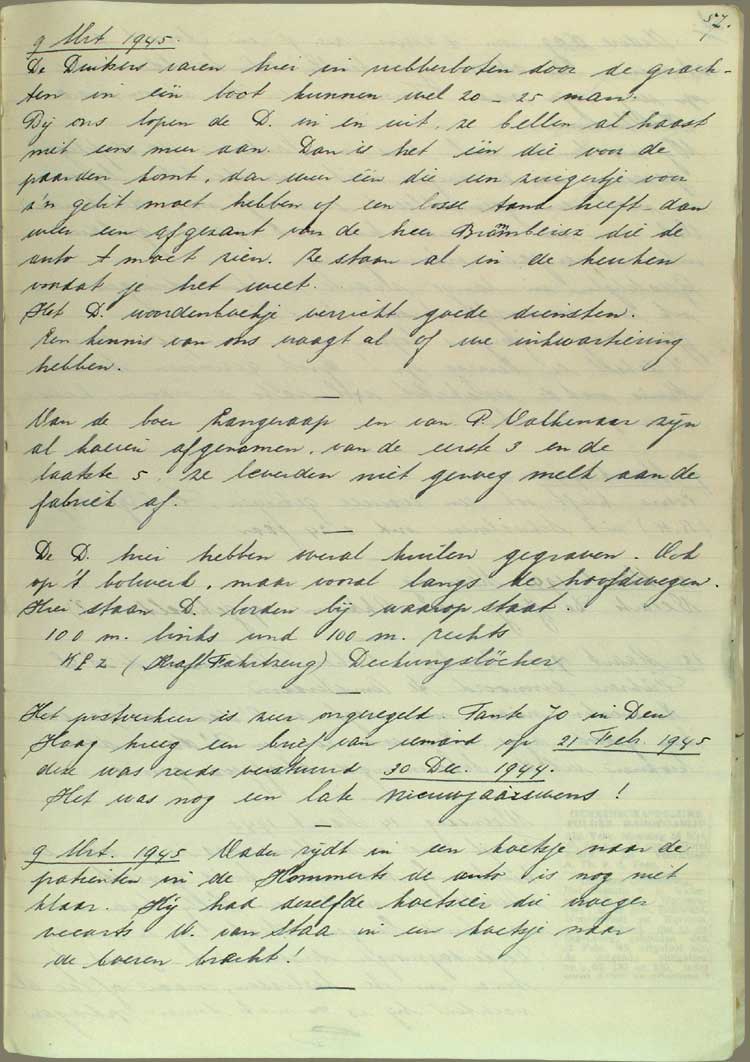 57.
9 Mrt. 1945.
De Duitsers varen hier in rubberboten door de grach-
ten in één boot kunnen wel 20 – 25 man.
Bij ons lopen de D. in en uit, ze bellen al haast
niet eens meer aan. Dan is het één die voor de
paarden komt, dan weer één die een zuigertje voor
z'n gebit moet hebben of een losse tand heeft – dan
weer een afgezant van de heer die de
auto moet zien. Ze staan al in de keuken
voordat je het weet.
Het D. woordenboekje verricht goede diensten.
Een kennis van ons vraagt al of we inkwartiering
hebben.
Van de boer Langeraap en van P. Valkenaar zijn
al koeien afgenomen, van de eerste 3 en de
laatste 5. Ze leverden niet genoeg melk aan de
fabriek af.
De D. hier hebben overal kuilen gegraven. Ook
op 't bolwerk, maar vooral langs de hoofdwegen.
Hier staan D. borden bij waarop staat.
100 m. links und 100 m. rechts
K F Z (Kraft Fahrtzeug) Deckungslöcher
Het postverkeer is zeer ongeregeld. Tante Jo in Den
Haag kreeg een brief van iemand op 21 Feb. 1945
deze was reeds verstuurd 30 Dec. 1944.
Het was nog een late nieuwjaarswens!
9 Mrt. 1945 Vader rijdt in een koetsje naar de
patiënten in de Hommerts de auto is nog niet
klaar. Hij had dezelfde koetsier die vroeger
veearts W. van Staa in een koetsje naar
de boeren bracht!